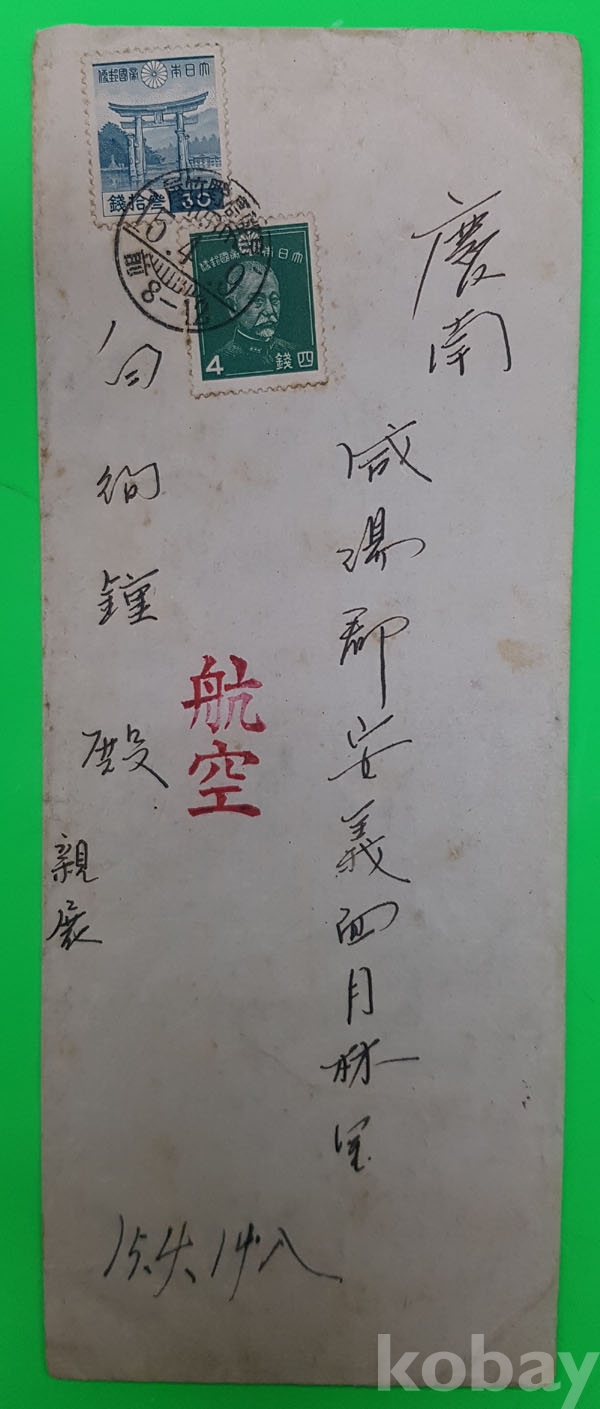 大日本帝國郵便
錢拾參
大日本帝國郵便
4 錢四
15.4.9
8-12
慶南
咸陽郡安義面月林里
航空
殿
親展
15.4.14.入
kobay